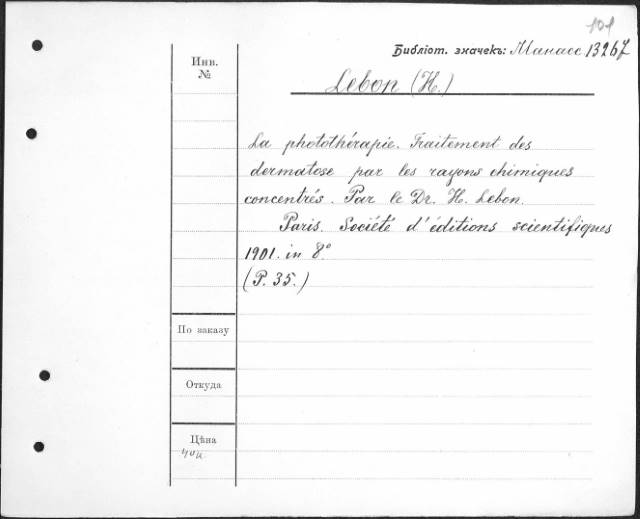 101
Библіот. значекъ: Манасс 13267
Инв.
№
Lebon (H.)
La photothérapie. Traitement des
dermatose par les rayons chimiques
concentrés. Par le Dr. H. Lebon.
Paris. Société d'éditions scientifiques
1901. in 8°
(P. 35.)
По заказу
Откуда
Цѣна